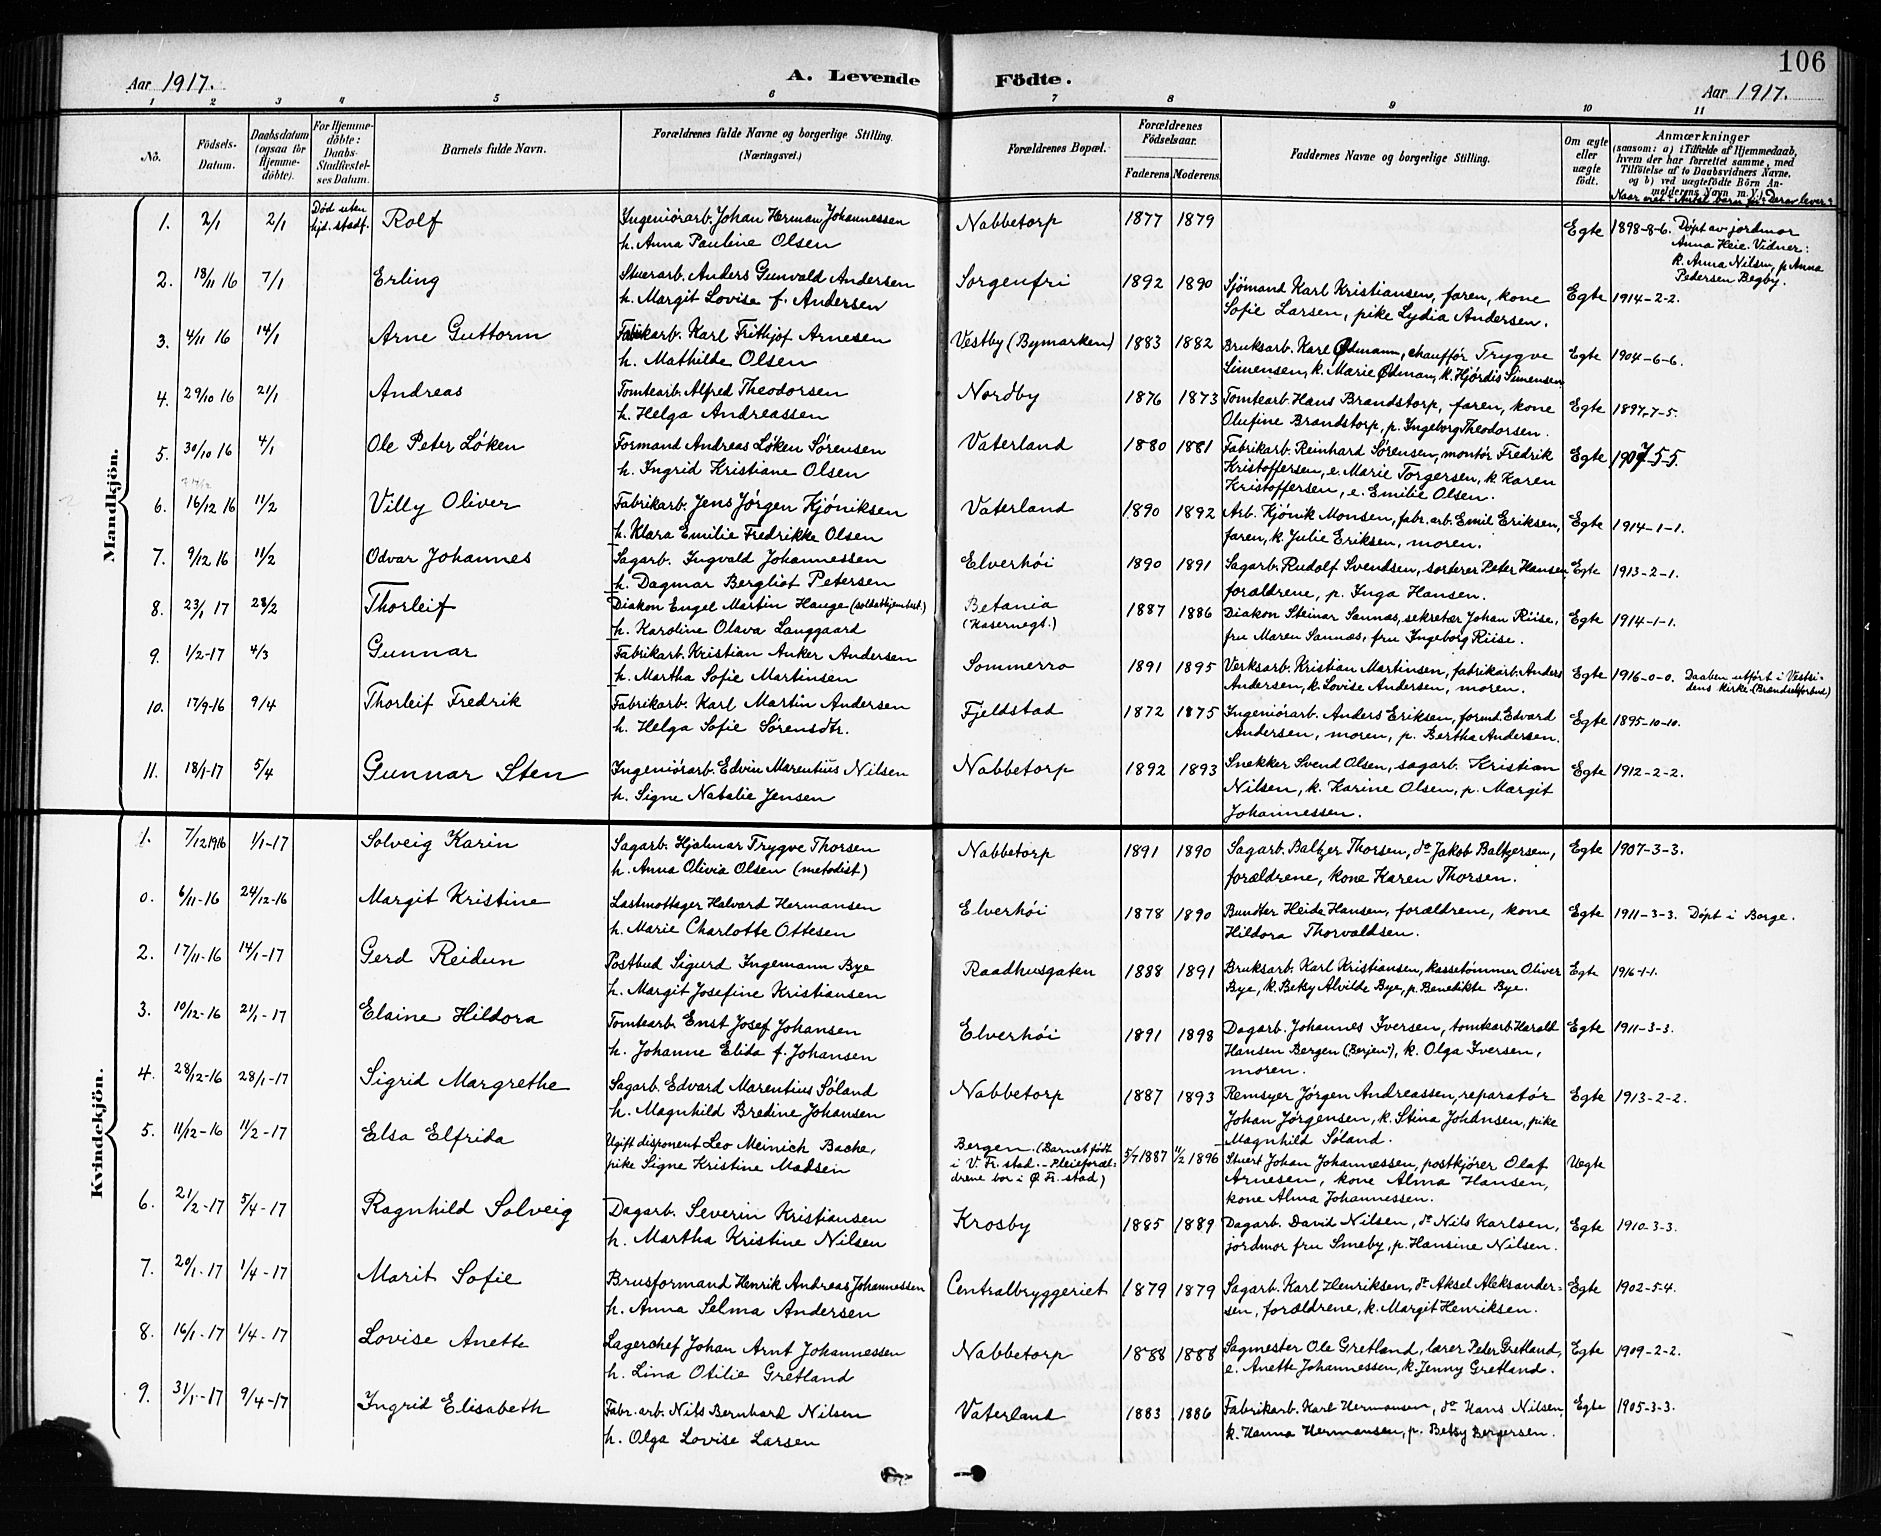 106
Aar 1917. A. Levende Födte. Aar 1917.
1 2 3 4 5 6 7 8 9 10 11
No. Födsels-Datum. Daabsdatum (ogsaa for Hjemme-döbte). For Hjemme-döbte: Daabs-Stadfæstel-ses Datum. Barnets fulde Navn. Forældrenes fulde Navne og borgerlige Stilling. (Næringsvei.) Forældrenes Bopæl. Forældrenes Födselsaar. Faderens Moderens. Faddernes Navne og borgerlige Stilling. Om ægte eller uægte födt. Anmærkninger (saasom: a) i Tilfælde af Hjemmedaab, hvem der har forrettet samme, med Tilföielse af to Daabsvidners Navne. og b) ved uægtefödte Börn An-melderens Navn m. V.)
Mandkjön.
1. 2/1 2/1 Død uten hjd. stadf. Rolf Ingeniörarb. Johan Herman Johannessen Nabbetorp 1877 1879 Egte 1898-8-6. Døpt av jordmor
h. Anna Pauline Olsen Anna Heie. Vidner:
k. Anna Nilsen, p. Anna
Pedersen Begby.
2. 18/11 16 7/1 Erling Stuerarb. Anders Gunvald Andersen Sorgenfri 1892 1890 Sjömand Karl Kristiansen, faren, kone Egte 1914-2-2.
h. Margit Lovise f. Andersen Sofie Larsen, pike Lydia Andersen.
3. 4/11 16 14/1 Arne Guttorm Fabrikarb. Karl Frithjof Arnesen Vestby (Bymarken) 1883 1882 Bruksarb. Karl Ødmann, chauffør Trygve Egte 1904-6-6.
h. Mathilde Olsen Simensen, k. Marie Ødman, k. Hjørdis Simensen
4. 29/10 16 21/1 Andreas Tomtearb. Alfred Theodorsen Nordby 1876 1873 Tomtearb. Hans Brandstorp, faren, kone Egte 1897-7-5.
h. Helga Andreassen Olufine Brandstorp, p. Ingeborg Theodorsen.
5. 30/10 16 4/1 Ole Peter Løken Formand Andreas Løken Sørensen Vaterland 1880 1881 Fabrikarb. Reinhard Sørensen, montør Fredrik Egte 1907-5-5.
h. Ingrid Kristiane Olsen Kristoffersen, e. Marie Torgersen, k. Karen
Kristoffersen, e. Emilie Olsen.
6. 16/12 16 11/2 Villy Oliver Fabrikarb. Jens Jørgen Kjöniksen Vaterland 1890 1892 Arb. Kjönik Monsen, fabr. arb. Emil Eriksen, Egte 1914-1-1.
h. Klara Emilie Fredrikke Olsen faren, k. Julie Eriksen, moren.
7. 9/12 16 11/2 Odvar Johannes Sagarb. Ingvald Johannessen Elverhöi 1890 1891 Sagarb. Rudolf Svendsen, sorterer Peter Hansen Egte 1913-2-1.
h. Dagmar Bergliot Petersen forældrene, p. Inga Hansen.
8. 23/1 17 28/2 Thorleif Diakon Engel Martin Hauge (soldathjembest.) Betania 1887 1886 Diakon Steinar Sannæs, sekretær Johan Riise, Egte 1914-1-1.
h. Karoline Olava Langgaard (Kasernegt.) fru Maren Sannæs, fru Ingeborg Riise.
9. 1/2-17 4/3 Gunnar Fabrikarb. Kristian Anker Andersen Sommerro 1891 1895 Verksarb. Kristian Martinsen, fabrikarb. Anders Egte 1916-0-0. Daaben utført i Vestsi-
h. Martha Sofie Martinsen Andersen, k. Lovise Andersen, moren. dens kirke.
10. 17/9-16 9/4 Thorleif Fredrik Fabrikarb. Karl Martin Andersen Fjeldstad 1872 1875 Ingeniörarb. Anders Eriksen, formd. Edvard Egte 1895-10-10.
h. Helga Sofie Sörensdtr. Andersen, moren, p. Bertha Andersen.
11. 18/1-17 5/4 Gunnar Sten Ingeniörarb. Edvin Marentius Nilsen Nabbetorp 1892 1893 Snekker Svend Olsen, sagarb. Kristian Egte 1912-2-2.
h. Signe Natalie Jensen Nilsen, k. Karine Olsen, p. Margit
Johannessen.
Kvindekjön.
1. 7/12 1916 1/1-17 Solveig Karin Sagarb. Hjalmar Trygve Thorsen Nabbetorp 1891 1890 Sagarb. Baltzer Thorsen, do Jakob Baltzersen, Egte 1907-3-3.
h. Anna Olivia Olsen (metodist) forældrene, kone Karen Thorsen.
0. 6/11-16 24/12-16 Margit Kristine Lastmottager Halvard Hermansen Elverhöi 1878 1890 Bundter Heide Hansen, forældrene, kone Egte 1911-3-3. Döpt i Borge.
h. Marie Charlotte Ottesen Hildora Thorvaldsen.
2. 17/11-16 14/1-17 Gerd Reidun Postbud Sigurd Ingemann Bye Raadhusgaten 1888 1891 Bruksarb. Karl Kristiansen, kassetømmer Oliver Egte 1916-1-1.
h. Margit Josefine Kristiansen Bye, k. Betsy Alvilde Bye, p. Benedikte Bye.
3. 10/12-16 21/1-17 Elaine Hildora Tomtearb. Enst Josef Johansen Elverhöi 1891 1898 Dagarb. Johannes Iversen, tomtearb. Harald Egte 1911-3-3.
h. Johanne Elida f. Johansen Hansen Bergen (Berjen), k. Olga Iversen,
moren.
4. 28/12-16 28/1-17 Sigrid Margrethe Sagarb. Edvard Marentius Söland Nabbetorp 1887 1893 Remsyer Jörgen Andreassen, reparatör Egte 1913-2-2.
h. Magnhild Bredine Johansen Johan Jörgensen, k. Stina Johansen, pike
Magnhild Söland.
5. 11/12-16 11/2-17 Elsa Elfrida Ugift disponent Leo Meinich Bache, Bergen. (Barnet födt 5/7 1887 11/2 1896 Stuert Johan Johannessen, postkjörer Olaf Uegte
pike Signe Kristine Madsen i V. Fr. stad. - Pleieforæl- Arnesen, kone Alma Hansen,
drene bor i Ø Fr. stad) kone Alma Johannessen.
6. 21/2-17 5/4-17 Ragnhild Solveig Dagarb. Severin Kristiansen Krosby 1885 1889 Dagarb. David Nilsen, do Nils Karlsen, Egte 1910-3-3.
h. Martha Kristine Nilsen jordmor fru Smeby, p. Hansine Nilsen.
7. 20/1-17 1/4-17 Marit Sofie Brusformand Henrik Andreas Johannessen Centralbryggeriet 1879 1879 Sagarb. Karl Henriksen, do Aksel Aleksander- Egte 1902-5-4.
h. Anna Selma Andersen sen, forældrene, k. Margit Henriksen.
8. 16/1-17 1/4-17 Lovise Anette Lagerchef Johan Arnt Johannessen Nabbetorp 1888 1888 Sagmester Ole Gretland, lærer Peter Gretland, Egte 1909-2-2.
h. Lina Otilie Gretland e. Anette Johannessen, k. Jenny Gretland.
9. 31/1-17 9/4-17 Ingrid Elisabeth Fabr. arb. Nils Bernhard Nilsen Vaterland 1883 1886 Fabrikarb. Karl Hermansen, do Hans Nilsen, Egte 1905-3-3.
h. Olga Lovise Larsen k. Hanna Hermansen, p. Betsy Bergersen.